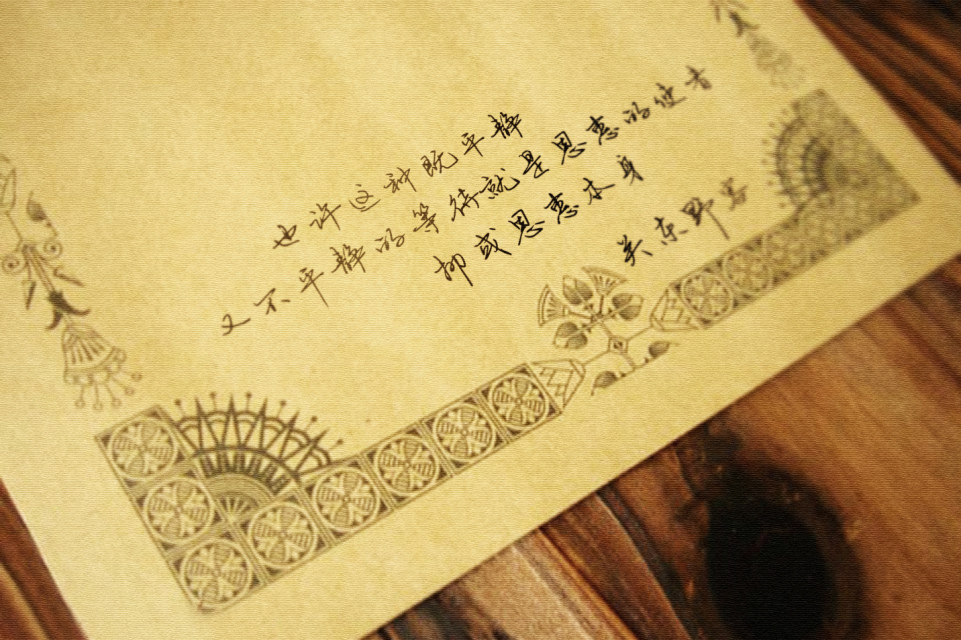 也许这种既平静
又不平静的等待就是恩惠的使者
抑或恩惠本身
关东野客